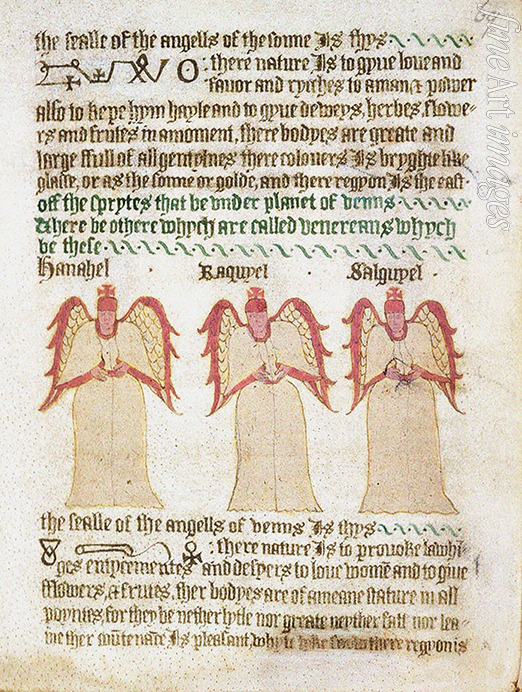 the sealle of the angells of the sonne Is thys
: there nature Is to gyue loue and
favor and ryches to a man & power
also to kepe hym hayle and to gyue deweys, herbes, flowe-
rs and frutes in a moment, there bodyes are greate and
large ffull of all gentylnes there colouers Is bryghte like
glasse, or as the sonne or golde, and there regyon Is the east.
off the sprytes that be vnder planet of venus
& here be othere whych are called venereans whych
be these
Hanahel · Raquyel · Salguyel ·
the sealle of the angells of venus Is thys
: there nature Is to provoke lawhi-
ges entycementes and desyers to loue womē and to giue
fflowers, & frutes, ther bodyes are of a meane stature in all
poyntes, for they be nether lytle nor greate neyther fatt nor lea-
ne ther coūtenaūce Is pleasant, whyte lyke there regyon is
fineArtimages